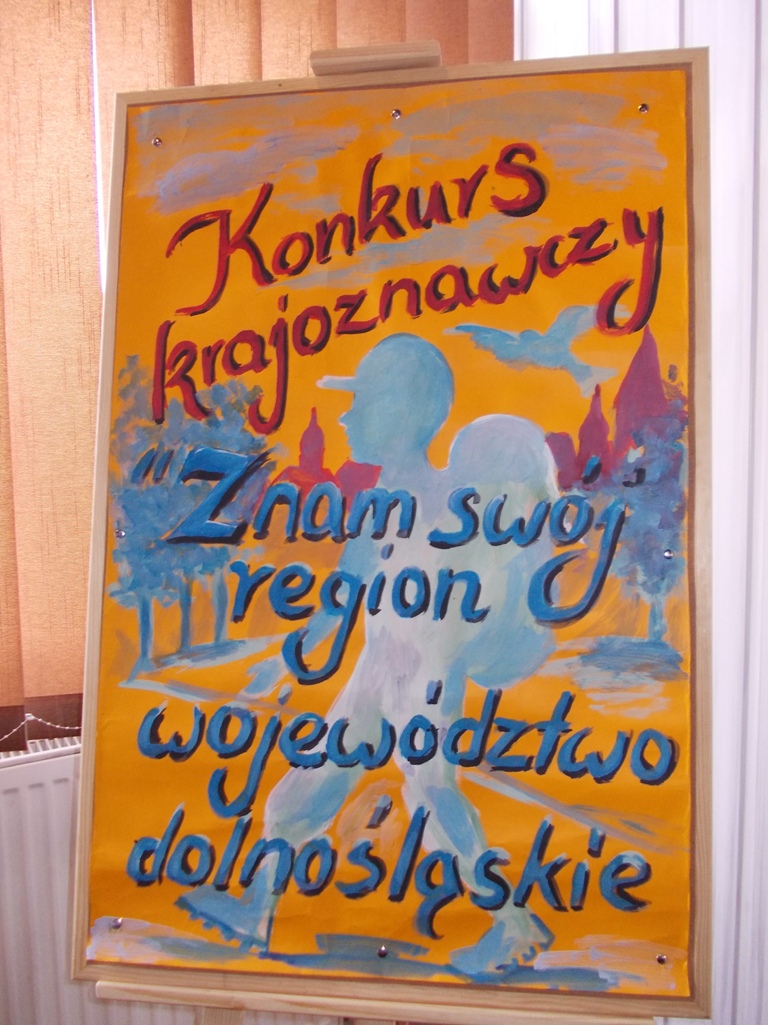 Konkurs
krajoznawczy
"Znam swój"
region
województwo
dolnośląskie